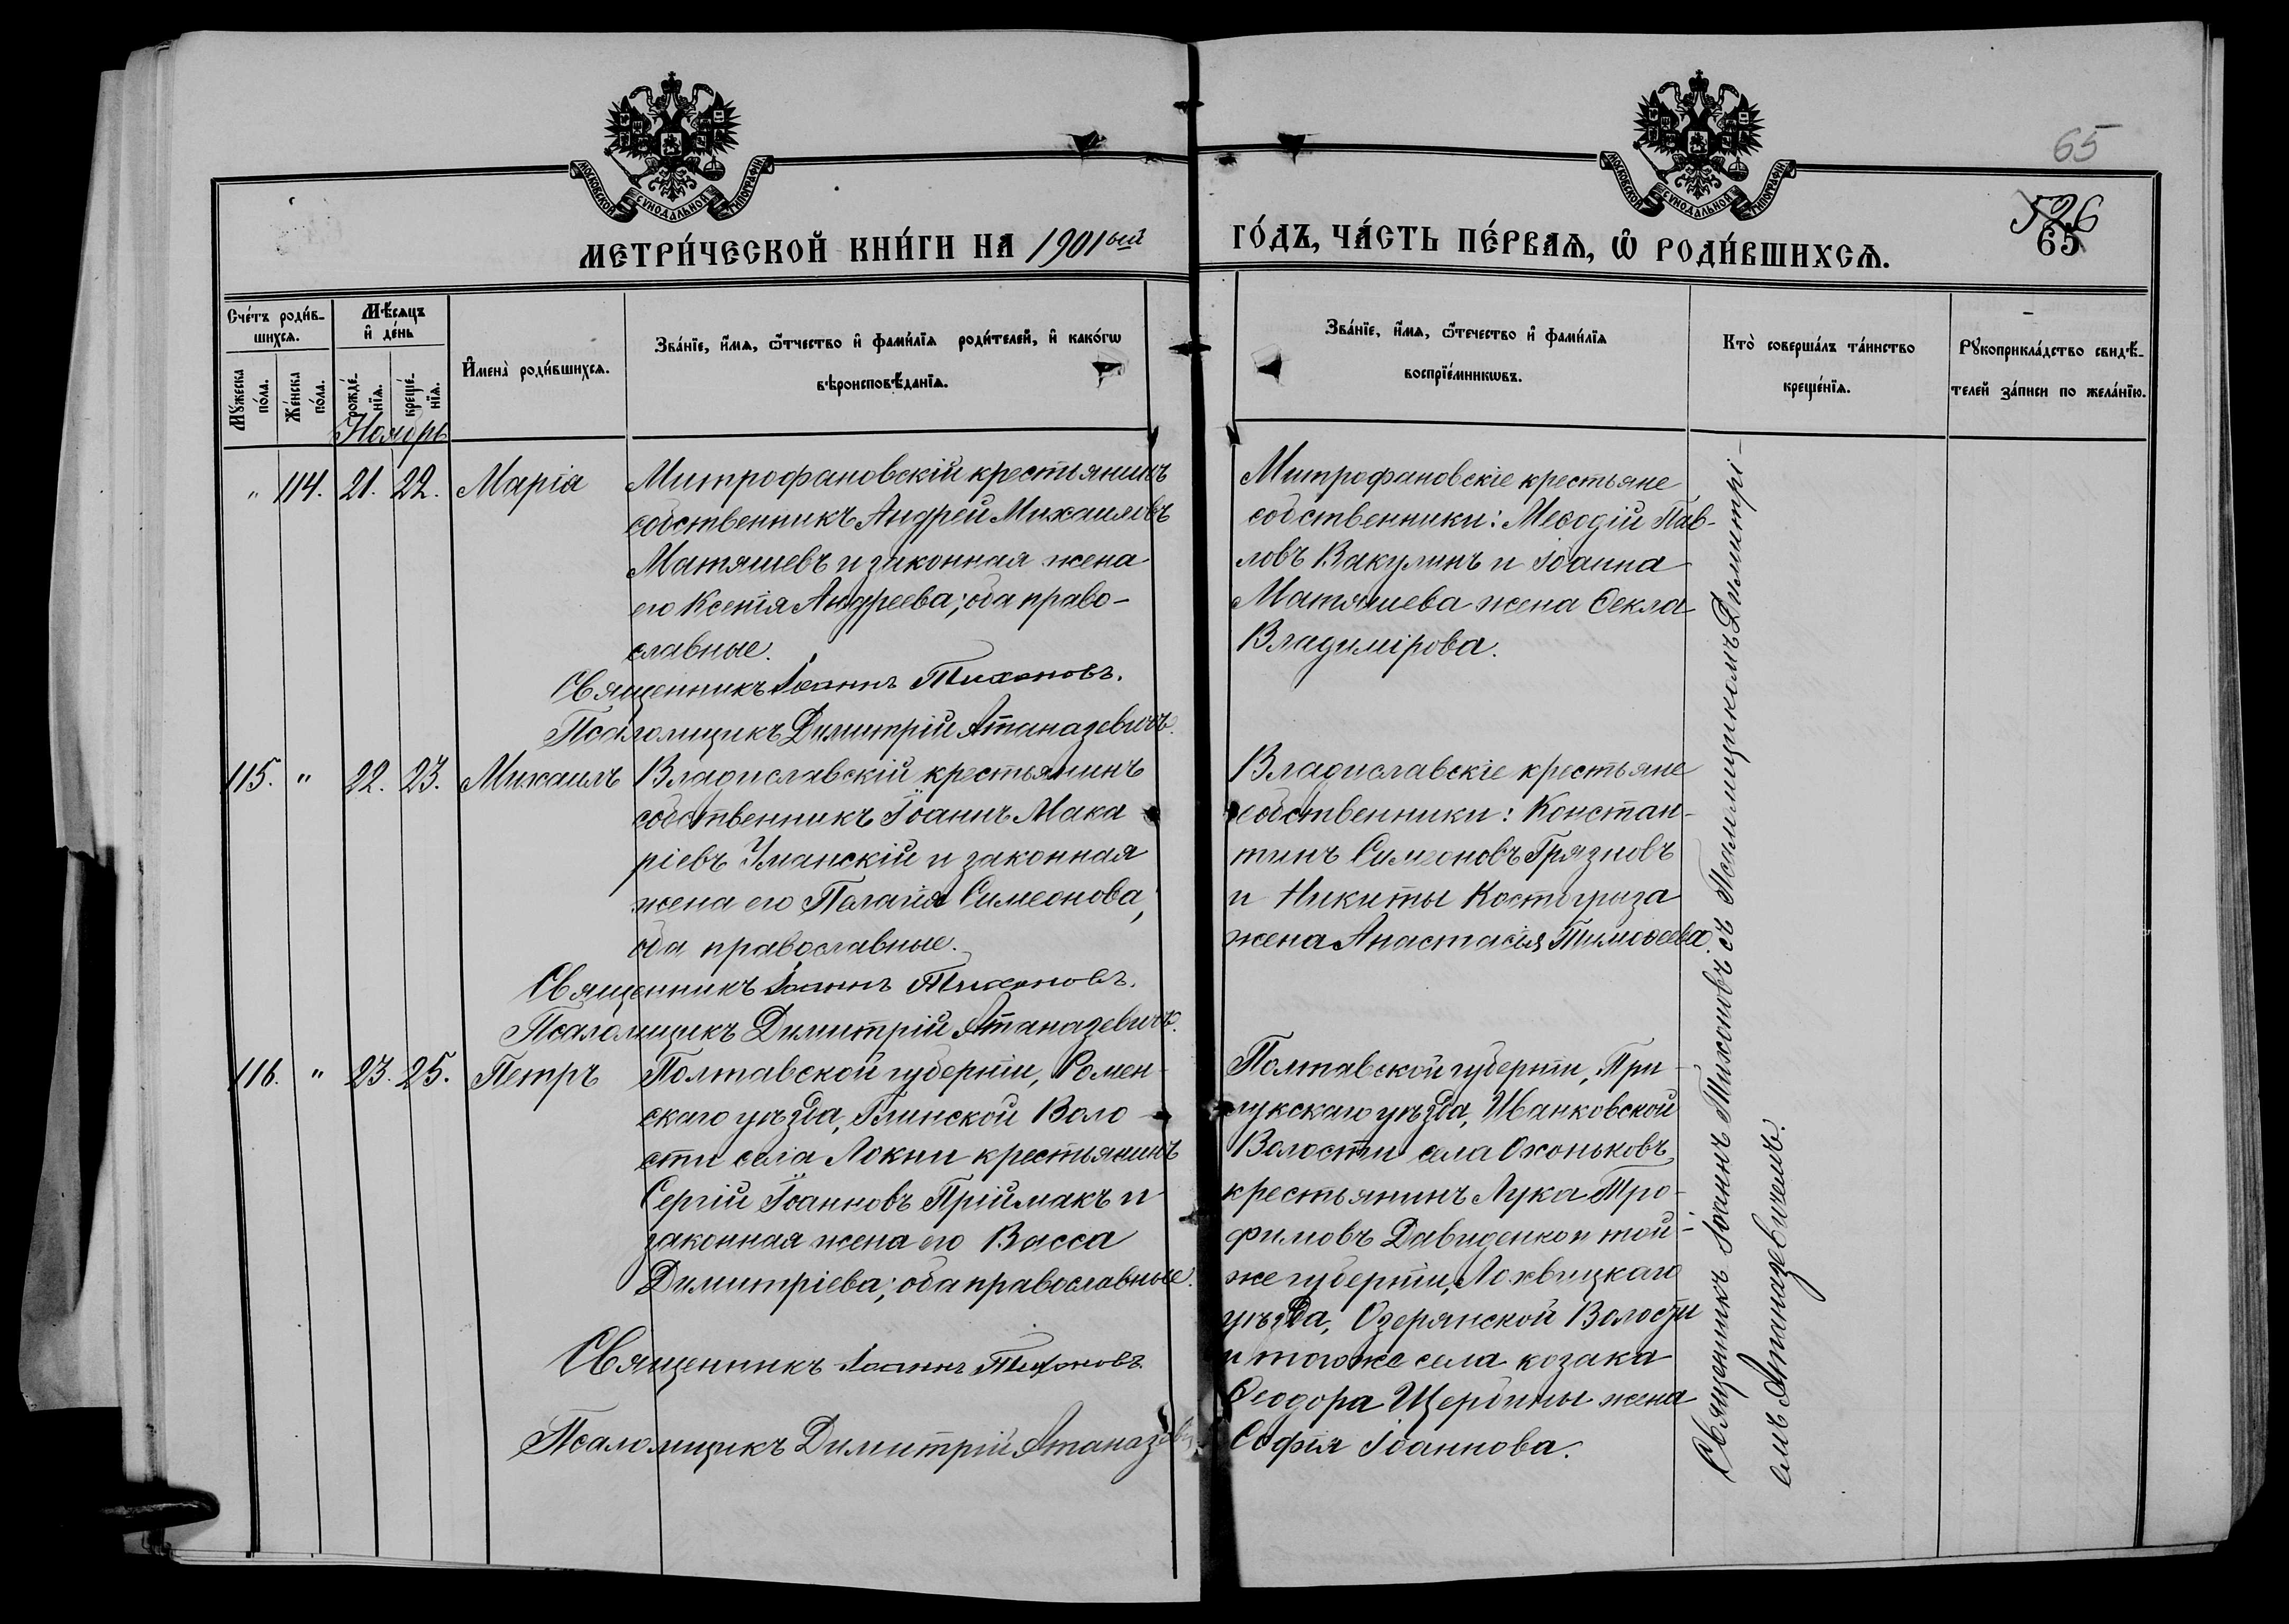 65
526
65
МОСКОВСКОЙ СѴНОДАЛЬНОЙ ТИПОГРАФІИ
МОСКОВСКОЙ СѴНОДАЛЬНОЙ ТИПОГРАФІИ
МЕТРИ́ЧЕСКОЙ КНИ́ГИ НА 1901ый ГО́ДЪ, ЧА́СТЬ ПЕ́РВАѦ, Ѡ҆ РОДИ́ВШИХСѦ.
Сче́тъ роди́в-
шихсѧ.
Мꙋ́жеска
по́ла.
Же́нска
по́ла.
Мѣ́сѧцъ
и҆ де́нь
рожде́-
нїѧ.
креще́-
нїѧ.
И҆мена̀ роди́вшихсѧ.
Зва́нїе, и҆́мѧ, ѻ҆́тчество и҆ фами́лїѧ роди́телей, и҆ како́гѡ
вѣроисповѣ́данїѧ.
Зва́нїе, и҆́мѧ, ѻ҆́течество и҆ фами́лїѧ
воспрїе́мникѡвъ.
Кто̀ соверша́лъ та́инство
креще́нїѧ.
Рꙋкоприкла́дство свидѣ́-
телей за́писи по жела́нїю.
Ноябрь
" 114. 21. 22. Марія
Митрофановскій крестьянинъ
собственникъ Андрей Михаиловъ
Матяшевъ и законная жена
его Ксенія Андреева; оба право-
славные.
Священникъ Іоаннъ Тихоновъ.
Псаломщикъ Димитрій Атаназевичъ.
Митрофановскіе крестьяне
собственники: Меѳодій Пав-
ловъ Вакулинъ и Іоанна
Матяшева жена Ѳекла
Владимірова.
115. " 22. 23. Михаилъ
Владиславскій крестьянинъ
собственникъ Іоаннъ Мака
ріевъ Уманскій и законная
жена его Пелагія Симеонова,
оба православные.
Священникъ Іоаннъ Тихоновъ.
Псаломщикъ Димитрій Атаназевичъ.
Владиславскіе крестьяне
собственники: Констан-
тинъ Симеоновъ Грязновъ
и Никиты Костогрыза
жена Анастасія Тимоѳеева.
116. " 23. 25. Петръ
Полтавской губерніи, Ромен-
скаго уѣзда, Глинской Воло-
сти села Локни крестьянинъ
Сергій Іоанновъ Пріймакъ и
законная жена его Васса
Димитріева; оба православные.
Священникъ Іоаннъ Тихоновъ
Псаломщикъ Димитрій Атаназеви
Полтавской губерніи, При-
лукскаго уѣзда, Иванковской
Волости села Охоньковъ
крестьянинъ Лука Тро-
фимовъ Давиденко и той-
же губерніи, Лохвицкаго
уѣзда, Озерянской Волости
и того же села козака
Ѳеодора Щербины жена
Софія Іоаннова.
Священникъ Іоаннъ Тихоновъ съ Псаломщикомъ Димитрі-
емъ Атаназевичемъ.